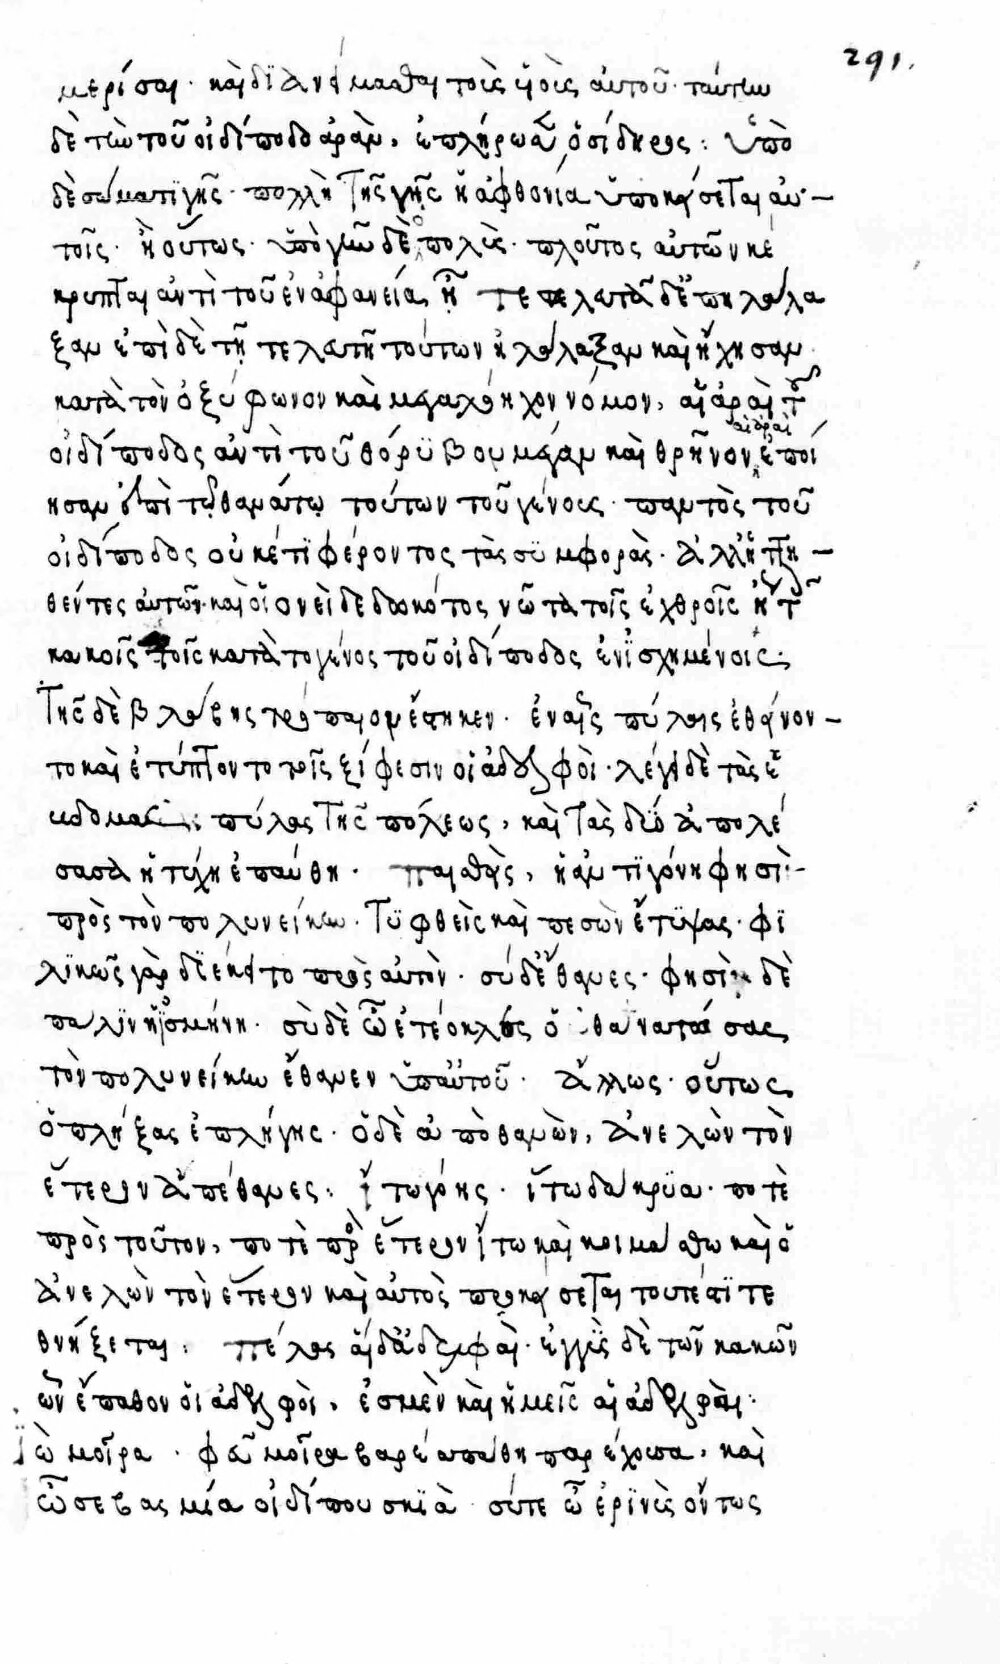 291.
μερίσαι· καὶ διανείμασθαι τοῖς υἱοῖς αὐτοῦ· ταύτην
δὲ τὴν τοῦ οἰδίποδος ἀρὰν, ἐπλήρωσεν ὁ σίδηρος: ὑπὸ
δὲ σώματι γῆς· πολλὴ τῆς γῆς ἡ ἀφθονία ὑποκείσεται αὐ-
τοῖς· ἢ οὕτως· ὑπὸ γῆν δὲ ὁ πολὺς· πλοῦτος αὐτῶν κέ
κρυπται ἀντὶ τοῦ ἐν ἀφανείᾳ τελευτᾶ δ' ἐπηλάλα
ξαν ἐπὶ δὲ τῇ τελευτῇ τούτων ἠλάλαξαν καὶ ἤχησαν
κατὰ τὸν ὀξύφωνον καὶ μεγαλόηχον νόμον, αἱ ἀραὶ τοῦ
οἰδίποδος ἀντὶ τοῦ θόρυβον μέγαν καὶ θρῆνον αἱ ἀραὶ ἐποί
ησαν ἐπὶ τῷ θανάτῳ τούτων τοῦ γένους· παντὸς τοῦ
οἰδίποδος οὐκέτι φέροντος τὰς συμφορὰς· ἀλλ' ἡττη-
θέντες αὐτῶν· καὶ οἱονεὶ δεδωκότος νῶτα τοῖς ἐχθροῖς ἢ τοῖς
κακοῖς τοῖς κατὰ τὸ γένος τοῦ οἰδίποδος ἐνισχημένοις:
Τῆς δὲ βλάβης τρόπαιον ἕστηκεν· ἐν αἷς πύλαις ἐθείνον-
το καὶ ἐτύπτοντο τοῖς ξίφεσιν οἱ ἀδελφοὶ· λέγει δὲ τὰς ἑ
βδόμας πύλας τῆς πόλεως, καὶ τὰς δύο ἀπολέ
σασα ἡ τύχη ἐπαύθη· παισθεὶς, ἡ ἀντιγόνη φησὶ·-
πρὸς τὸν πολυνείκην· Τυφθεὶς καὶ πεσὼν ἔτυψας· φι
λικῶς γὰρ διέκειτο πρὸς αὐτὸν· σὺ δ' ἔθανες· φησὶ δὲ
πάλιν ἡ ἰσμήνη· σὺ δὲ ὦ ἐτέοκλες ὁ θανατώσας
τὸν πολυνείκην ἔθανεν ὑπ' αὐτοῦ· Ἄλλως· οὕτως
ὁ πλήξας ἐπλήγης· ὁ δὲ ἀποθανὼν, ἀνελὼν τὸν
ἕτερον ἀπέθανες: ἴτω γόης· ἴτω δάκρυα· ποτὲ
πρὸς τοῦτον, ποτὲ πρὸς ἕτερον ἴτω καὶ κοιμάσθω καὶ ὁ
ἀνελὼν τὸν ἕτερον καὶ αὐτὸς προκείσεται τουτέστι τε
θνήξεται: πέλας αἵδ' ἀδελφαὶ· ἐγγὺς δὲ τῶν κακῶν
ὧν ἔπαθον οἱ ἀδελφοὶ, ἐσμὲν καὶ ἡμεῖς αἱ ἀδελφαὶ·
ἰὼ μοῖρα· φεῦ μοῖρα βαρέα πάθη παρέχουσα, καὶ
ὦ σεβασμία οἰδίπου σκιὰ· σύτε ὦ ἐρινὺς ὄντως